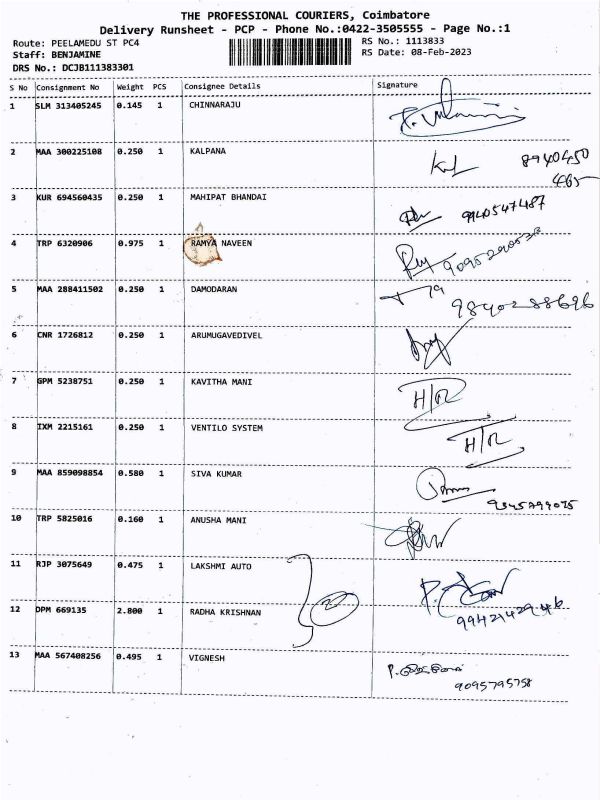 THE PROFESSIONAL COURIERS, Coimbatore
Delivery Runsheet - PCP - Phone No.:0422-3505555 - Page No.:1
Route: PEELAMEDU ST PC4
RS No.: 1113833
Staff: BENJAMINE
RS Date: 08-Feb-2023
DRS No.: DCJB111383301
S No Consignment No Weight PCS Consignee Details Signature
1 SLM 313405245 0.145 1 CHINNARAJU
2 MAA 300225108 0.250 1 KALPANA 8940450
465
3 KUR 694560435 0.250 1 MAHIPAT BHANDAI 9940547487
4 TRP 6320906 0.975 1 RAMYA NAVEEN
5 MAA 288411502 0.250 1 DAMODARAN
9840288696
6 CNR 1726812 0.250 1 ARUMUGAVEDIVEL
7 GPM 5238751 0.250 1 KAVITHA MANI H/R
8 IXM 2215161 0.250 1 VENTILO SYSTEM H/R
9 MAA 859098854 0.580 1 SIVA KUMAR
10 TRP 5825016 0.160 1 ANUSHA MANI
11 RJP 3075649 0.475 1 LAKSHMI AUTO
12 DPM 669135 2.800 1 RADHA KRISHNAN
13 MAA 567408256 0.495 1 VIGNESH
9095795758